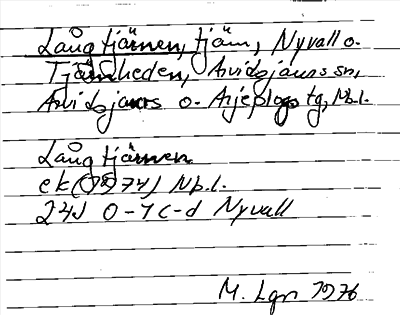 Långtjärnen, tjärn, Nyvall o.
Tjärnheden, Arvidsjaurs sn,
Arvidsjaurs o. Arjeplogs tg, Nb.l.
Långtjärnen
ek (1974) Nb.l.
24J 0-1 c-d Nyvall
M. Lgn 1976